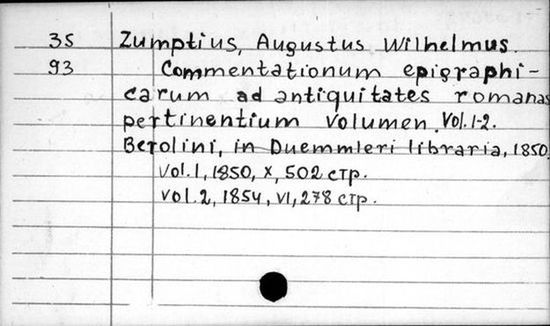 35 Zumptius, Augustus Wilhelmus.
93 Commentationum epigraphi-
carum ad antiquitates romanas
pertinentium volumen. Vol. 1-2.
Berolini, in Duemmleri libraria, 1850
Vol. 1, 1850, X, 502 стр.
Vol. 2, 1854, VI, 278 стр.